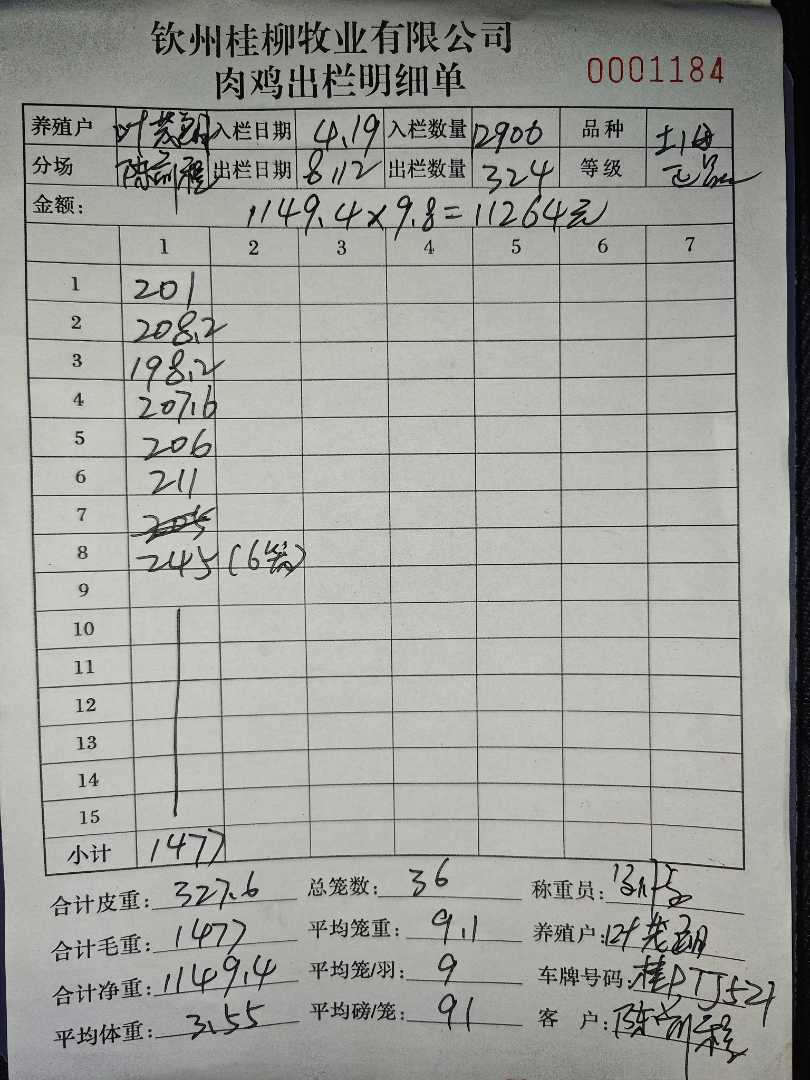 钦州桂柳牧业有限公司
肉鸡出栏明细单 0001184
养殖户 叶 入栏日期 4.19 入栏数量 12900 品种 土
分场 陈 出栏日期 8.12 出栏数量 324 等级 正品
金额: 1149.4×9.8=11264元
1 2 3 4 5 6 7
1 201
2 208.2
3 198.2
4 207.6
5 206
6 211
7 205
8 245 (6笼)
9
10
11
12
13
14
15
小计 1477
合计皮重: 327.6 总笼数: 36 称重员:
合计毛重: 1477 平均笼重: 9.1 养殖户: 叶
合计净重: 1149.4 平均笼/羽: 9 车牌号码: 桂PTJ527
平均体重: 3.55 平均磅/笼: 91 客 户: 陈